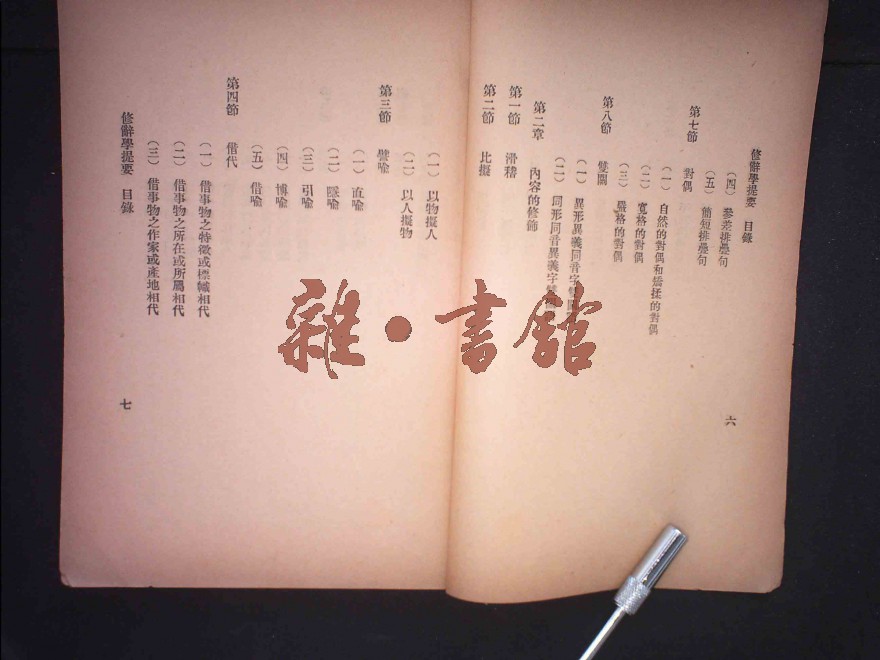 修辭學提要 目錄
(四) 參差排疊句
(五) 簡短排疊句
第七節 對偶
(一) 自然的對偶和矯揉的對偶
(二) 寬格的對偶
(三) 嚴格的對偶
第八節 雙關
(一) 異形異義同音字雙關
(二) 同形同音異義字雙關
第二章 內容的修飾
第一節 滑稽
第二節 比擬
六
(一) 以物擬人
(二) 以人擬物
第三節 譬喻
(一) 直喻
(二) 隱喻
(三) 引喻
(四) 博喻
(五) 借喻
第四節 借代
(一) 借事物之特徵或標幟相代
(二) 借事物之所在或所屬相代
(三) 借事物之作家或產地相代
修辭學提要 目錄
七
雜·書館